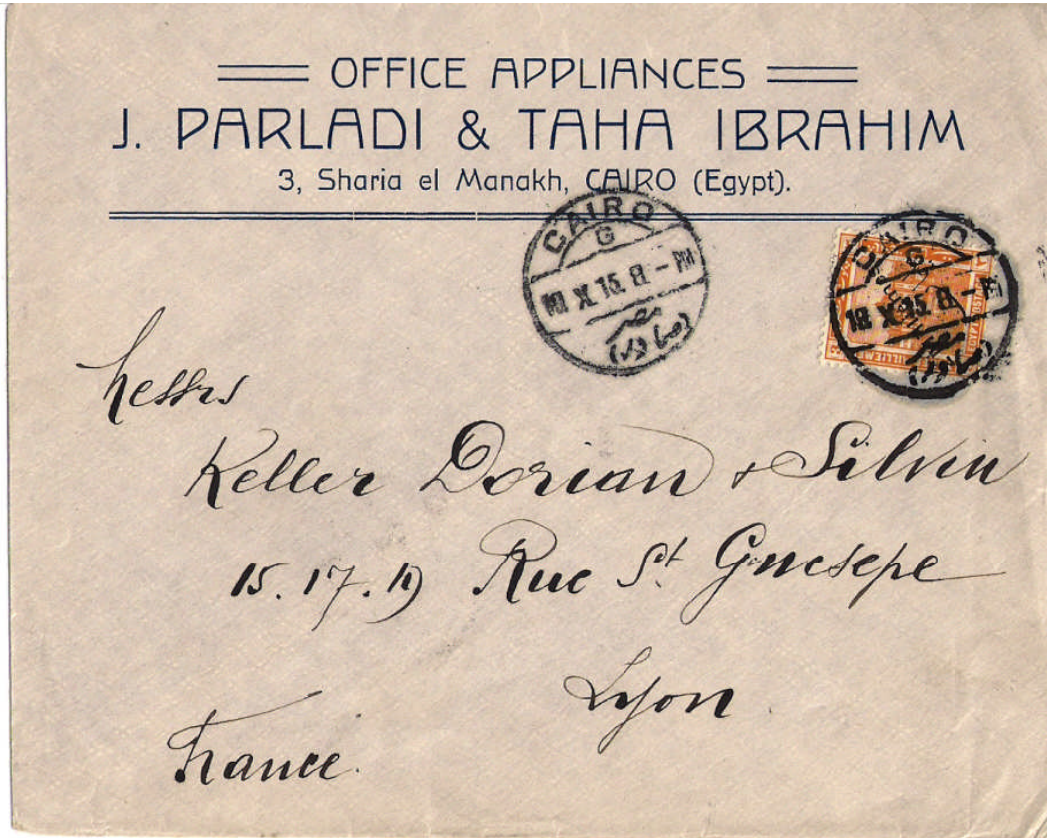 OFFICE APPLIANCES
J. PARLADI & TAHA IBRAHIM
3, Sharia el Manakh, CAIRO (Egypt).
CAIRO
G
18 X 15. 8 - PM
مصر
(صادر)
CAIRO
G
18 X 15. 8 -
مصر
(صادر)
Messrs
Keller Dorian & Silvin
15. 17. 19 Rue St
Lyon
France.